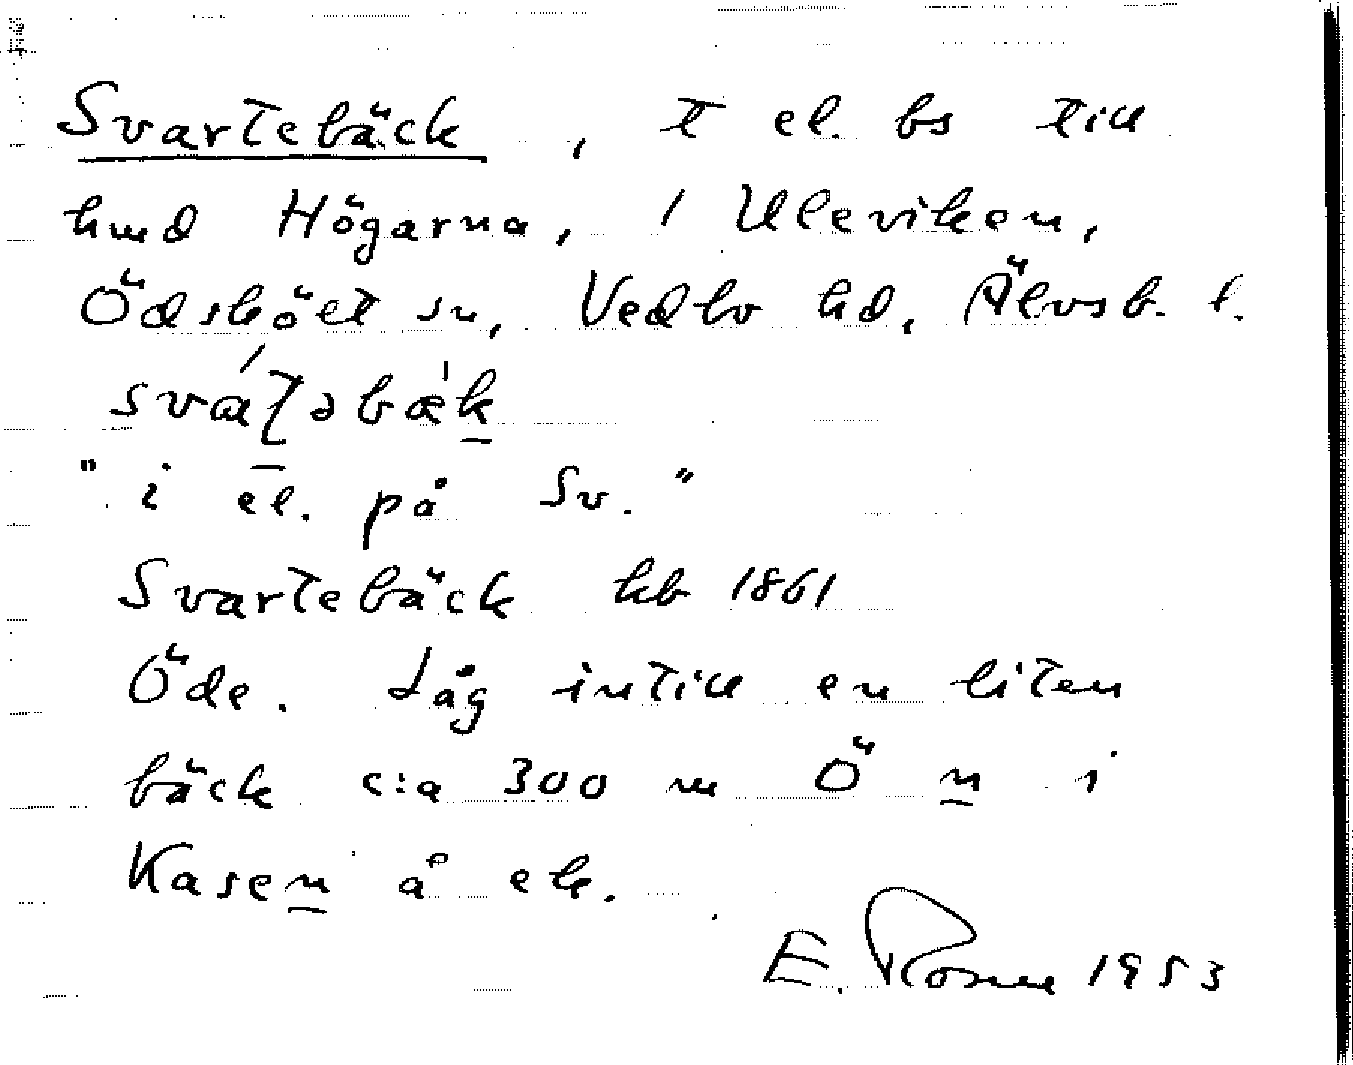 Svartebäck, t el. bs till
hmd Högarna, / Uleviken,
Ödsköλt sn, Vedbo hd, Älvsb. l.
sváʈəbæ̀k
" i el. på Sv. "
Svartebäck kb 1861
Öde. Låg intill en liten
bäck c:a 300 m Ö n i
Kasen å ek.
E. 1953